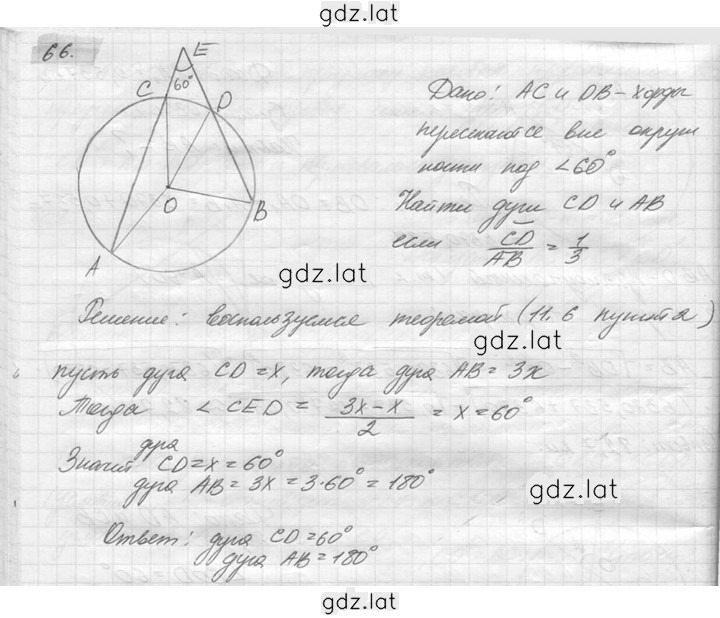 gdz.lat
66.
E
60°
C
D
O
B
A
Дано: AC и DB – хорды
пересекаются вне окруж
ности под ∠60°
Найти дуги CD и AB
если CD/AB = 1/3
gdz.lat
gdz.lat
Решение: воспользуемся теоремой (11.6 пункт 2)
пусть дуга CD = x, тогда дуга AB = 3x
Тогда ∠CED = 3x-x/2 = x = 60°
Значит дуга CD = x = 60°
дуга AB = 3x = 3·60° = 180°
gdz.lat
Ответ: дуга CD = 60°
дуга AB = 180°
gdz.lat